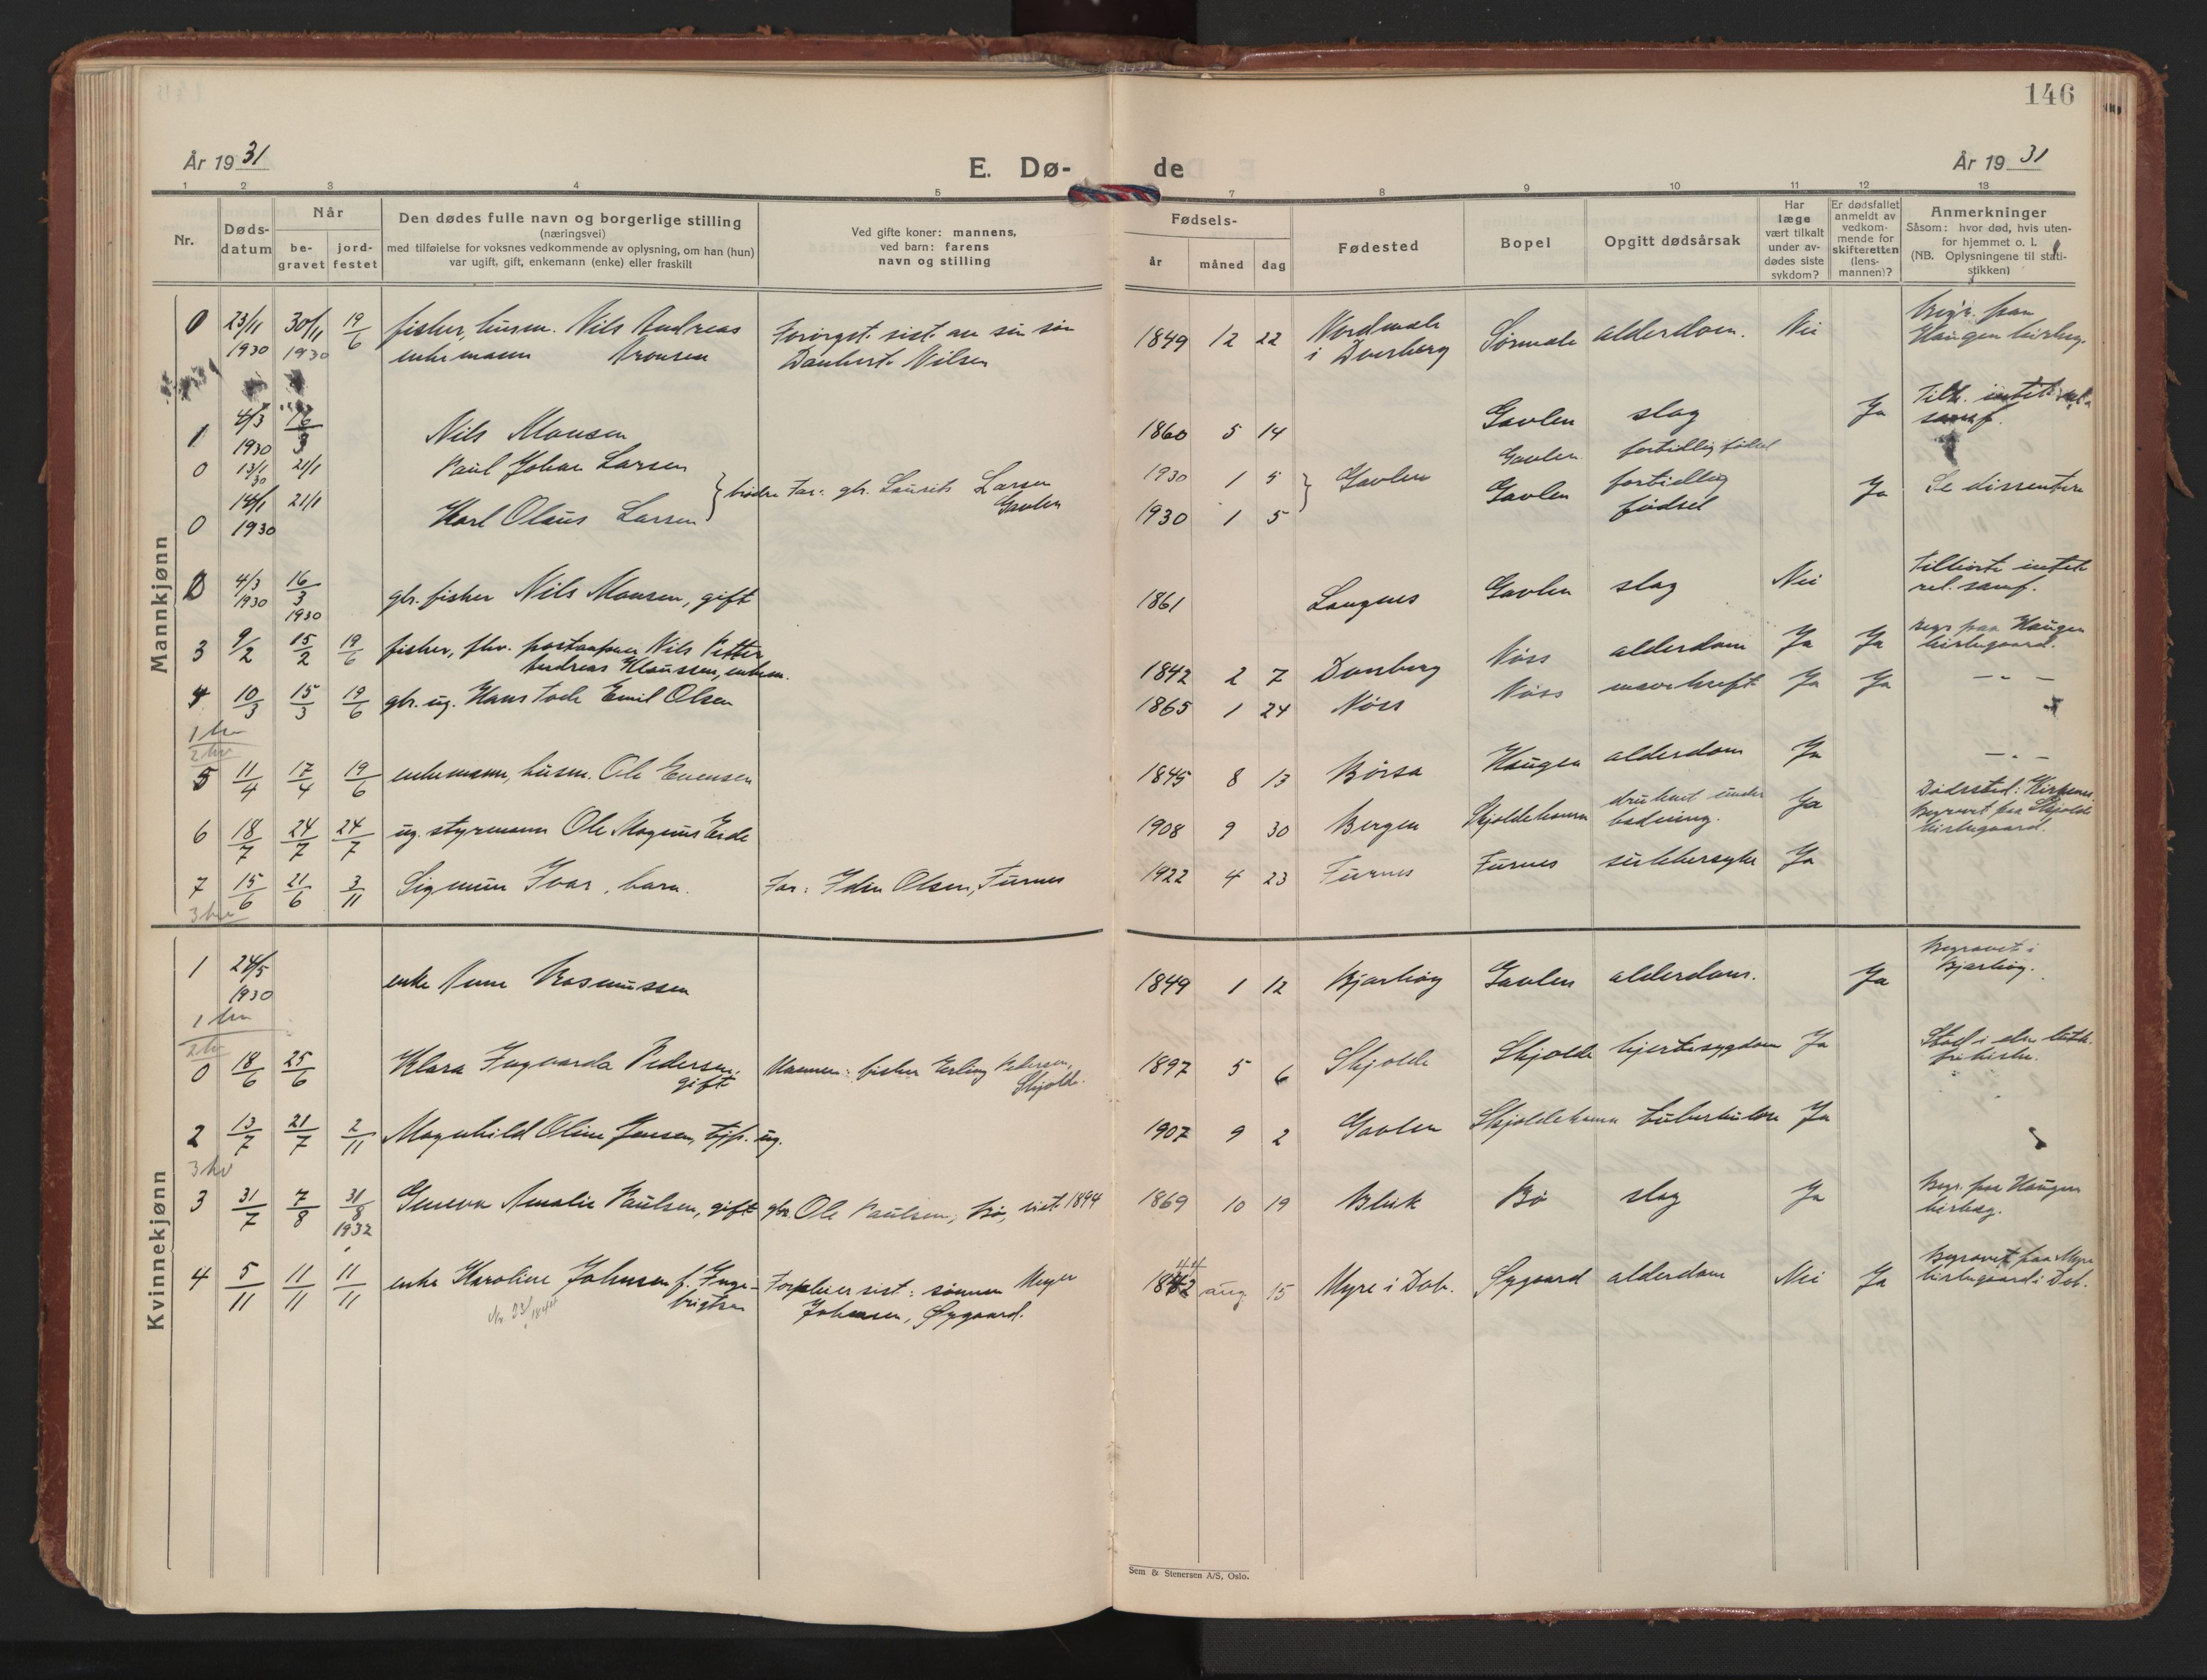 146
År 1931
E. Dø-
de
År 1931
1 2 3 4 5
7 8 9 10 11 12 13
Nr.
Døds-
datum
Når
be-
gravet
jord-
festet
Den dødes fulle navn og borgerlige stilling
(næringsvei)
med tilføielse for voksnes vedkommende av oplysning, om han (hun)
var ugift, gift, enkemann (enke) eller fraskilt
Ved gifte koner: mannens,
ved barn: farens
navn og stilling
Fødsels-
år måned dag
Fødested
Bopel
Opgitt dødsårsak
Har
læge
vært tilkalt
under av-
dødes siste
sykdom?
Er dødsfallet
anmeldt av
vedkom-
mende for
skifteretten
(lens-
mannen)?
Anmerkninger
Såsom: hvor død, hvis uten-
for hjemmet o. l.
(NB. Oplysningene til stati-
stikken)
Mannkjønn
0 23/11 30/11 19/6 fisker, husm. Nils Andreas Forsørget sist av sin søn 1849 12 22 Nordmela Sørmela alderdom. Nei
1930 1930 enkemann Aronsen Nilsen i Dverberg Haugen kirkeg.
1 4/3 16/3 Nils Monsen 1860 5 14 Gavlen slag Ja Tilh. intet rel.
1930 samf.
0 13/1 30 21/1 Paul Johan Larsen 1930 1 5 Gavlen Gavlen fortidlig fødsel
brødre Far: gbr. Laurits Larsen Gavlen
0 14/1 1930 21/1 Karl Olaus Larsen 1930 1 5 Gavlen fortidlig fødsel Ja Se dissentere
0 4/3 1930 16/3 1930 gbr. fisker Nils Monsen, gift 1861 Langenes Gavlen slag Nei Tilhørte intet
rel. samf.
3 9/2 15/2 19/6 fisker, fhv. postaapner Nils Petter 1842 2 7 Dverberg Nöss alderdom Ja Ja Begr paa Haugen
Andreas Klaussen, enkem. kirkegaard.
4 10/3 15/3 19/6 gbr. ug. Hans Emil Olsen 1865 1 24 Nöss Nöss mavekreft Ja Ja — " —
1 hv
2 hv
5 11/4 17/4 19/6 enkemann, husm. Ole Evensen 1845 8 13 Börsa Haugen alderdom Ja — " —
6 18/7 24/7 24/7 ug. styrmann Ole Magnus Eide 1908 9 30 Bergen Skjoldehamn druknet under badning. Ja Dödssted: Kirkenes.
Begravet paa Skjolde
kirkegaard.
7 15/6 21/6 3/11 Sigmun Ivar, barn. Far: Edin Olsen, Furnes 1922 4 23 Furnes Furnes sukkersyke Ja
3 hv
Kvinnekjønn
1 24/5 1930 enke Anne Rasmussen 1849 1 12 Bjarköy Gavlen alderdom. Ja Begravet i
Bjarköy.
1 hv
2 hv
0 18/6 25/6 Klara Ingvarda Pedersen, gift Mannen: fisker Erling Pedersen, Skjolde. 1897 5 6 Skjolde Skjolde hjertesygdom Ja Stod i den luth.
frikirke.
2 13/7 21/7 2/11 Magnhild Oline Jensen, tjp. ug. 1907 9 2 Gavlen Skjoldehamn tuberkulose Ja
3 hv
3 31/7 7/8 31/8 1932 Geneva Amalie Paulsen, gift gbr. Ole Paulsen, Bö, viet 1894 1869 10 19 Bleik Bö slag Ja Begr. paa Haugen
kirkeg.
4 5/11 11/11 11/11 enke Karoline Johnsen f. Inge- Forpleier sist: sönnen Meyer 1842 44 aug. 15 Myre i Dvb. Sygaard alderdom Nei Ja Begravet paa Myre
brigtsen Johnsen, Sygaard. kirkegaard i Dvb.
Nr. 23/1844
Sem & Stenersen A/S, Oslo.